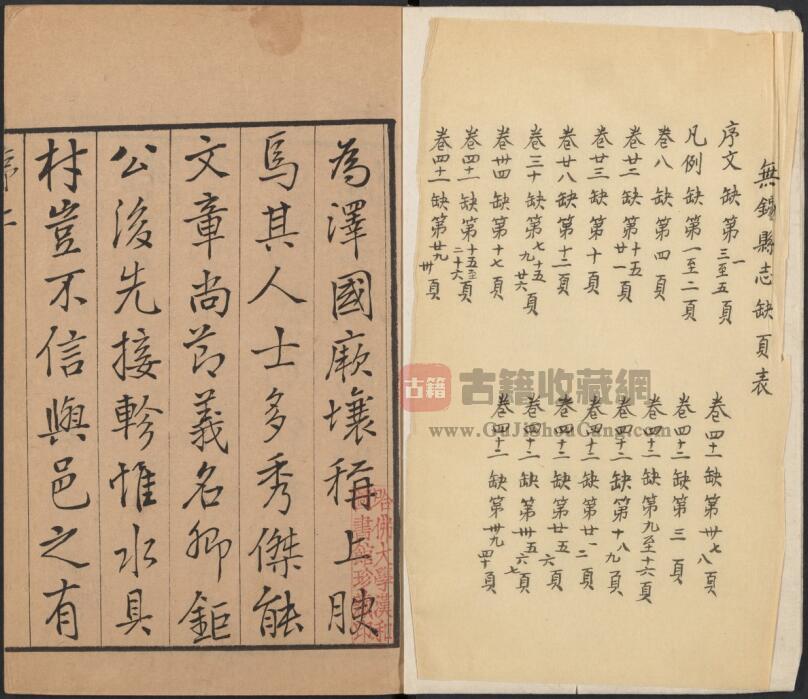 無錫縣志缺頁表
序文 缺第一三至五頁
凡例 缺第一至二頁
卷八 缺第四頁
卷廿二 缺第十五廿一頁
卷廿三 缺第十頁
卷廿八 缺第十二頁
卷三十 缺第七十五九廿六頁
卷卅四 缺第十七頁
卷四十一 缺第十五至二十六頁
卷四十一 缺第廿九卅頁
卷四十一 缺第卅七八頁
卷四十二 缺第三頁
卷四十二 缺第九至十六頁
卷四十二 缺第十八九頁
卷四十二 缺第廿一二頁
卷四十二 缺第廿五六頁
卷四十二 缺第卅五六七頁
卷四十二 缺第卅九四十頁
為澤國厥壤稱上腴
焉其人士多秀傑能
文章尚節義名卿鉅
公後先接軫惟水具
材豈不信與邑之有
序二
哈佛大學漢和
圖書館珍藏印
古籍
古籍收藏網
www.GuJiShouCang.com